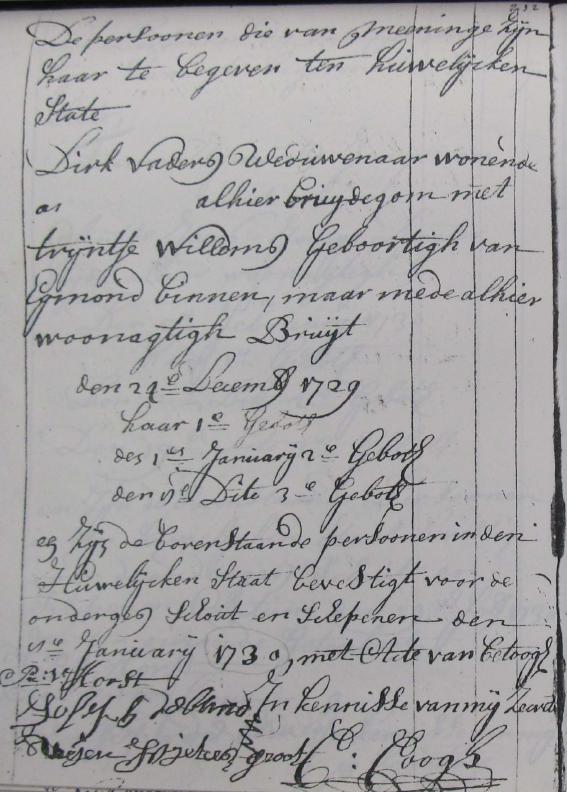 De persoonen die van meeninge zijn
haar te begeven ten huwelijcken
State
Dirk Vaders Weduwenaar wonende
alhier bruijdegom met
trijntje Willems Geboortigh van
Egmond binnen, maar mede alhier
woonagtigh Bruijt
den 24e Decemb 1729
haar 1e Geboth
des 1es Januarij 2e Geboth
den Dito 3e Geboth
en zijn de bovenstaande persoonen in den
Huwelijcken Staat bevestigt voor de
onderges Schout en Schepenen den
Januarij 1730, met Acte van betoogh
Horst
In kennisse van mij
groot C: Coogh